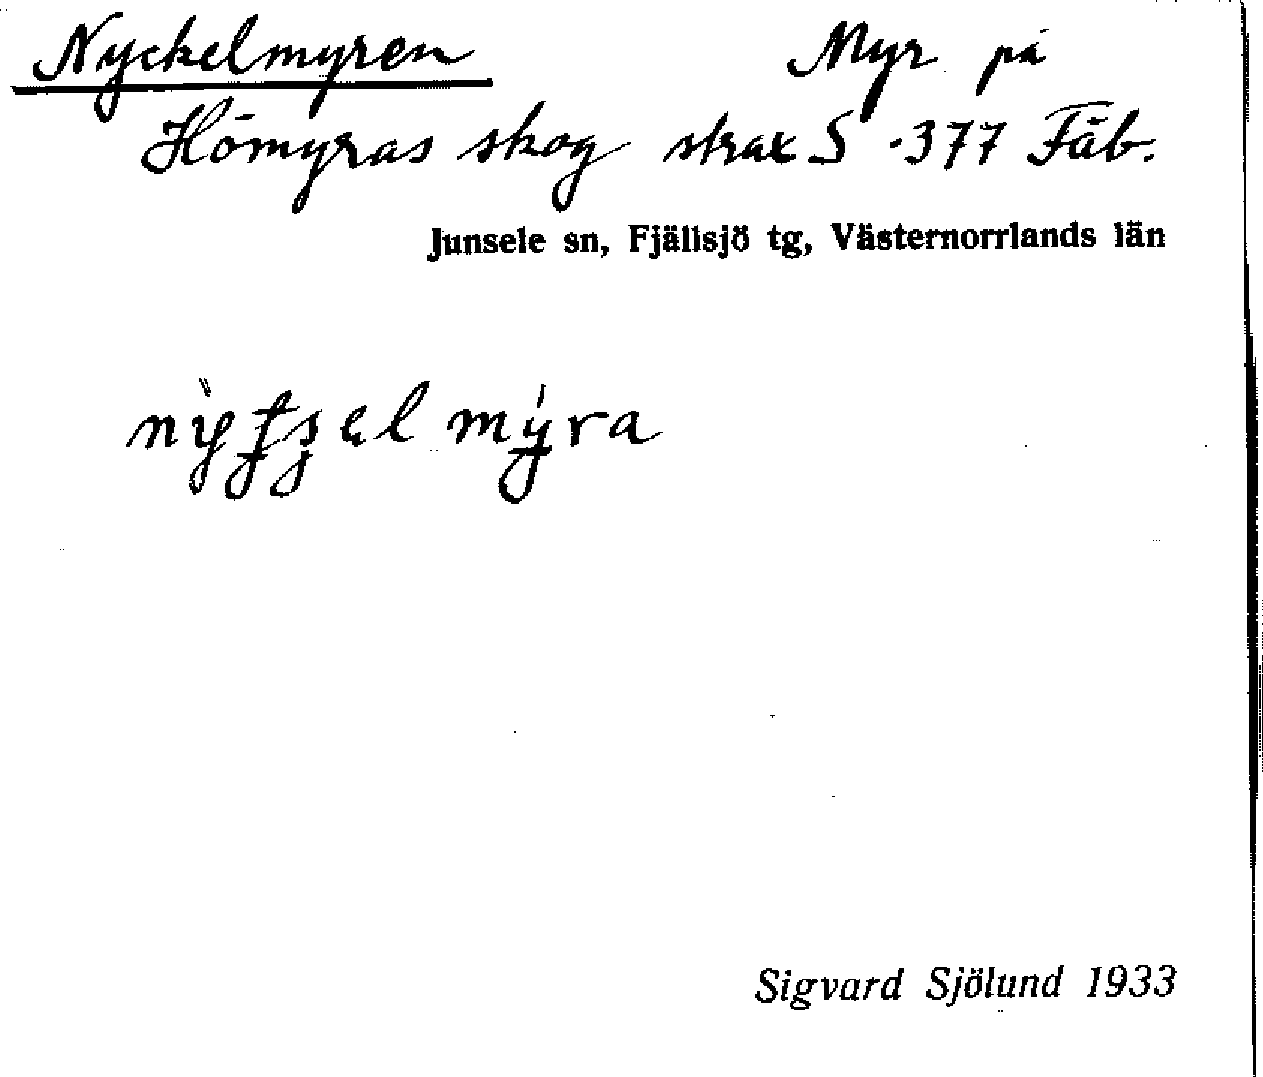 Nyckelmyren Myr på
Hömyras skog strax S ·377 Fäb.
Junsele sn, Fjällsjö tg, Västernorrlands län
mýra
Sigvard Sjölund 1933